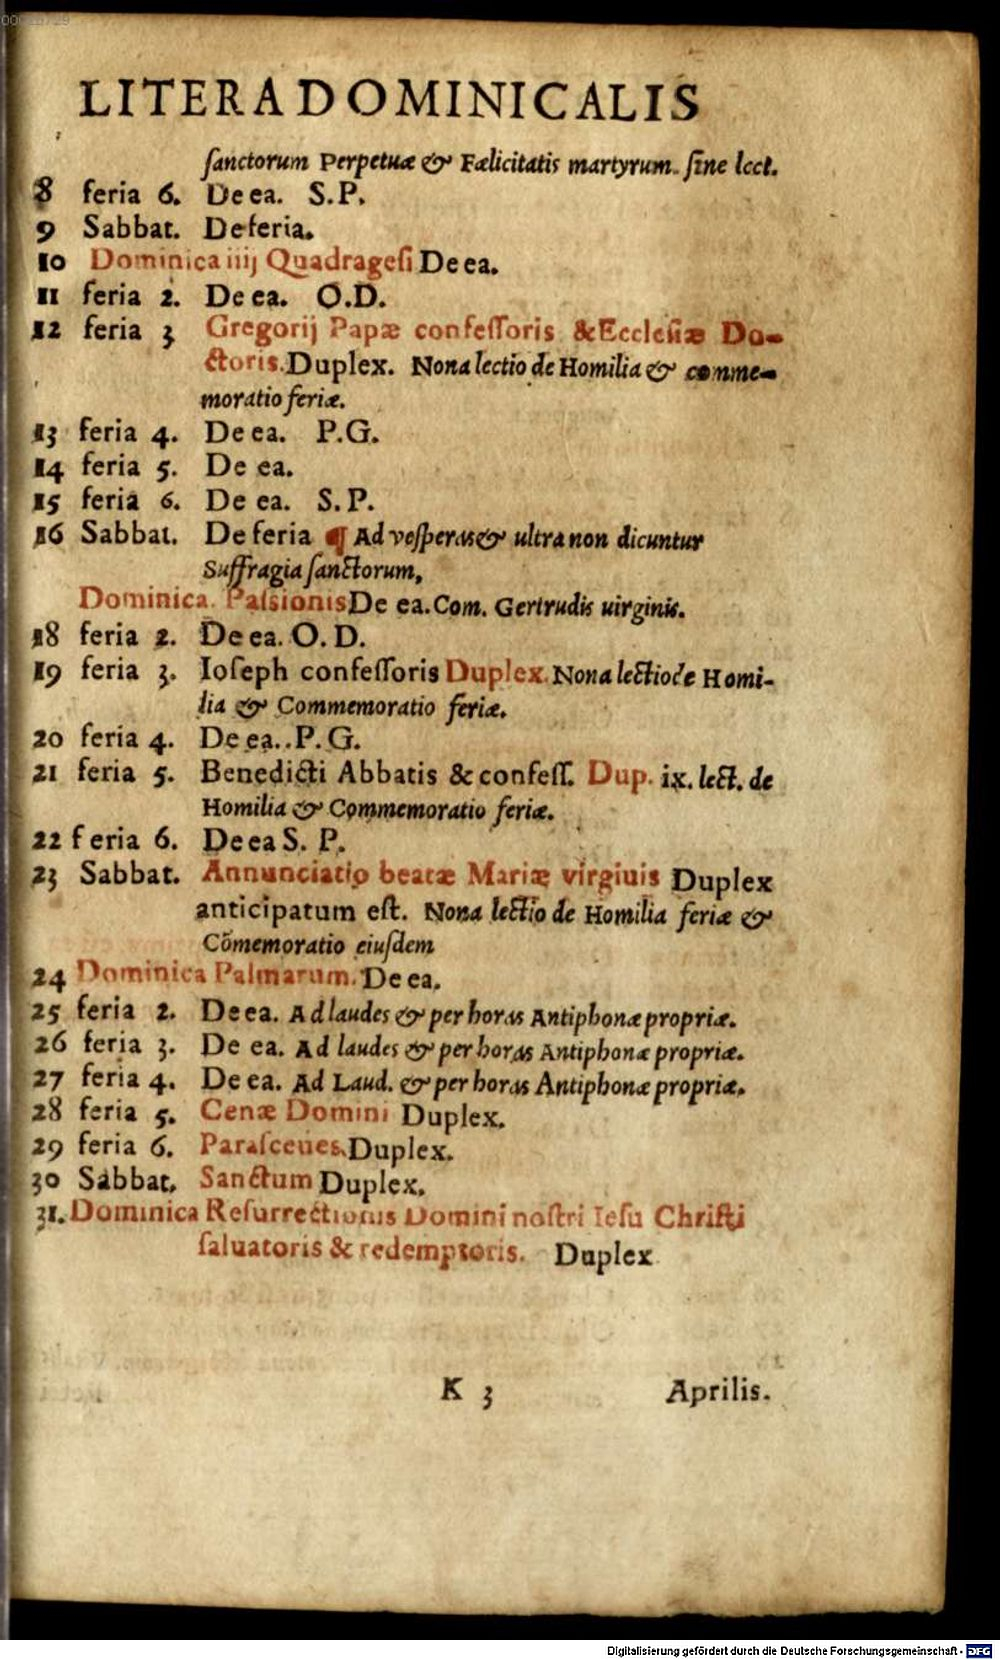 LITERA DOMINICALIS
ſanctorum Perpetuæ & Fælicitatis martyrum. ſine lect.
8 feria 6. De ea. S.P.
9 Sabbat. De feria.
10 Dominica iiij Quadrageſi De ea.
11 feria 2. De ea. O.D.
12 feria 3 Gregorij Papæ confeſſoris & Eccleſiæ Do-
ctoris. Duplex. Nona lectio de Homilia & comme-
moratio feriæ.
13 feria 4. De ea. P.G.
14 feria 5. De ea.
15 feria 6. De ea. S.P.
16 Sabbat. De feria ¶ Ad veſperas & ultra non dicuntur
Suffragia ſanctorum,
Dominica. Paſsionis De ea. Com. Gertrudis uirginis.
18 feria 2. De ea. O. D.
19 feria 3. Ioſeph confeſſoris Duplex. Nona lectio de Homi-
lia & Commemoratio feriæ.
20 feria 4. De ea..P. G.
21 feria 5. Benedicti Abbatis & confeſſ. Dup. ix. lect. de
Homilia & Commemoratio feriæ.
22 feria 6. De ea S. P.
23 Sabbat. Annunciatio beatæ Mariæ virgiuis Duplex
anticipatum eſt. Nona lectio de Homilia feriæ &
Cõmemoratio eiuſdem
24 Dominica Palmarum. De ea.
25 feria 2. De ea. Ad laudes & per horas Antiphonæ propriæ.
26 feria 3. De ea. Ad laudes & per horas Antiphonæ propriæ.
27 feria 4. De ea. Ad Laud. & per horas Antiphonæ propriæ.
28 feria 5. Cenæ Domini Duplex.
29 feria 6. Paraſceues. Duplex.
30 Sabbat. Sanctum Duplex.
31. Dominica Reſurrectionis Domini noſtri Ieſu Chriſti
ſaluatoris & redemptoris. Duplex
K 3 Aprilis.
Digitalisierung gefördert durch die Deutsche Forschungsgemeinschaft - DFG